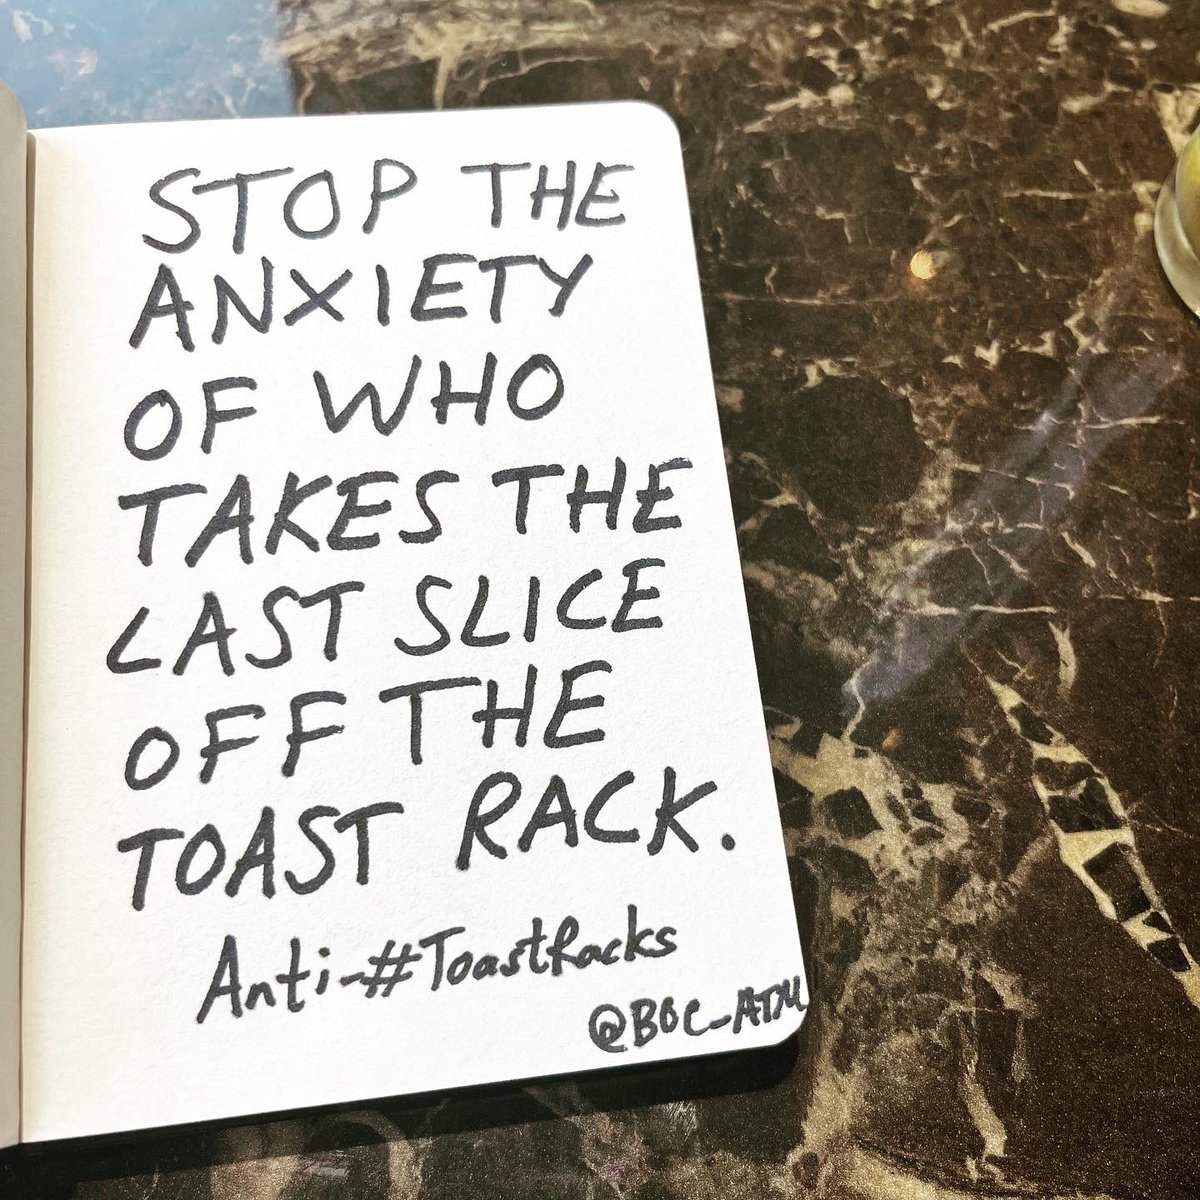 STOP THE
ANXIETY
OF WHO
TAKES THE
LAST SLICE
OFF THE
TOAST RACK.
Anti-#ToastRacks
@BOC_ATM